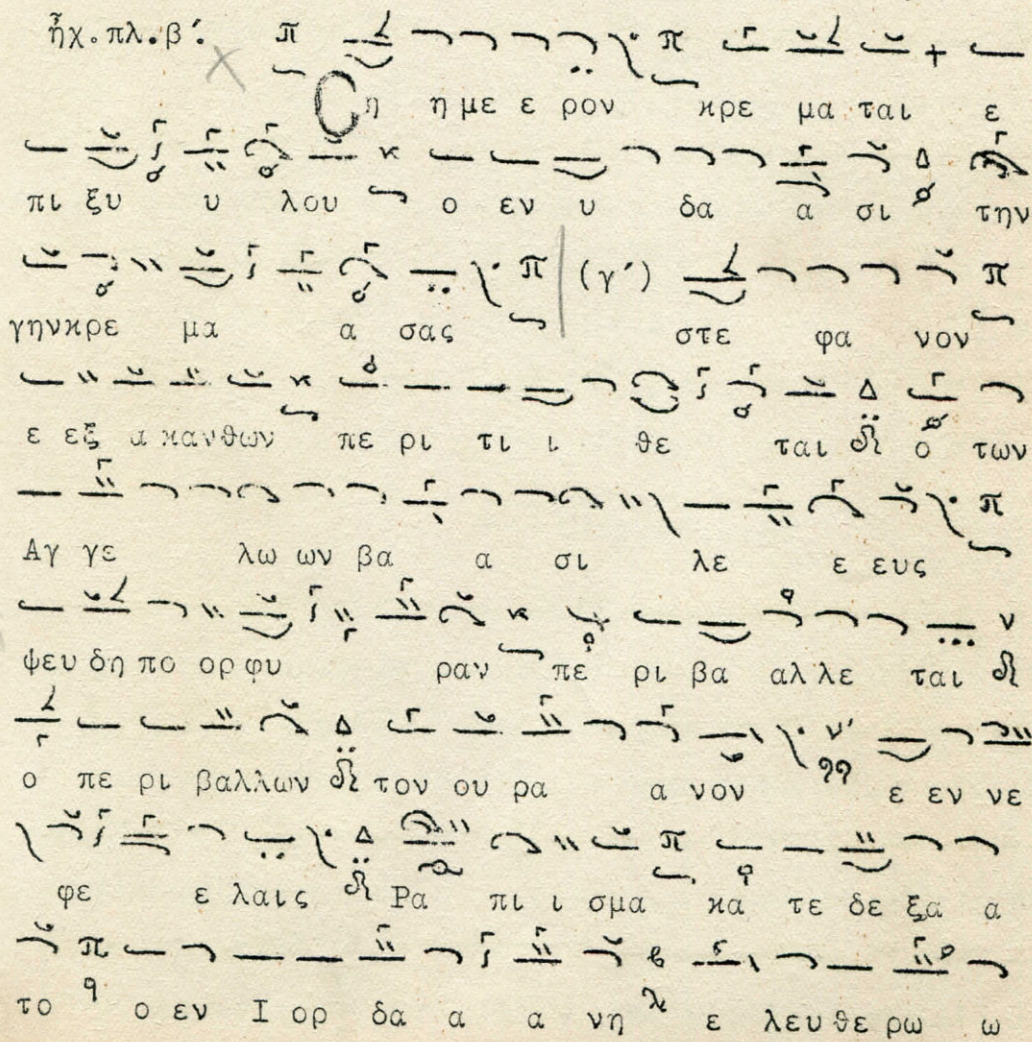 ἦχ. πλ. β΄. Π Π
Ση η με ε ρον κρε μα ται ε
πι ξυ υ λου ο εν υ δα α σι την
γην κρε μα α σας (γ΄) στε φα νον
ε εξ α κανθων πε ρι τι ι θε ται ο των
Αγ γε λω ων βα α σι λε ε ευς
ψευ δη πο ορ φυ ραν πε ρι βα αλ λε ται
ο πε ρι βαλλων τον ου ρα α νον ε εν νε
φε ε λαις Ρα πι ι σμα κα τε δε ξα α
το ο εν Ι ορ δα α α νη ε λευ θε ρω ω